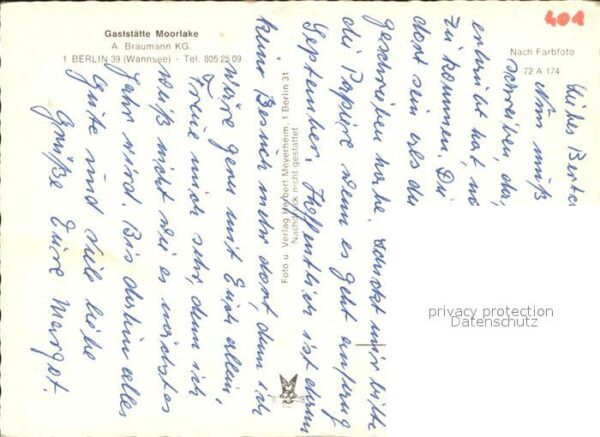 Gaststätte Moorlake
A. Braumann KG.
1 BERLIN 39 (Wannsee) - Tel. 805 25 09
401
Nach Farbfoto
72 A 174
Foto u. Verlag Herbert Meyerheim, 1 Berlin 31
Nachdruck nicht gestattet
Nun muß
schreiben, da
erlaubt hat
zu kommen. Die
dort sein als du
geschrieben habe. schickt mir bitte
die Papiere wenn es geht anfang
September. Hoffentlich ist dann
keine Besuch mehr dort, denn ich
wäre gern mit Euch allein,
Freue mich sehr, denn ich
weiß nicht wie es nächstes
Jahr wird. Bis dahin alles
Gute und viele liebe
Grüße Eure Margot.
privacy protection
Datenschutz